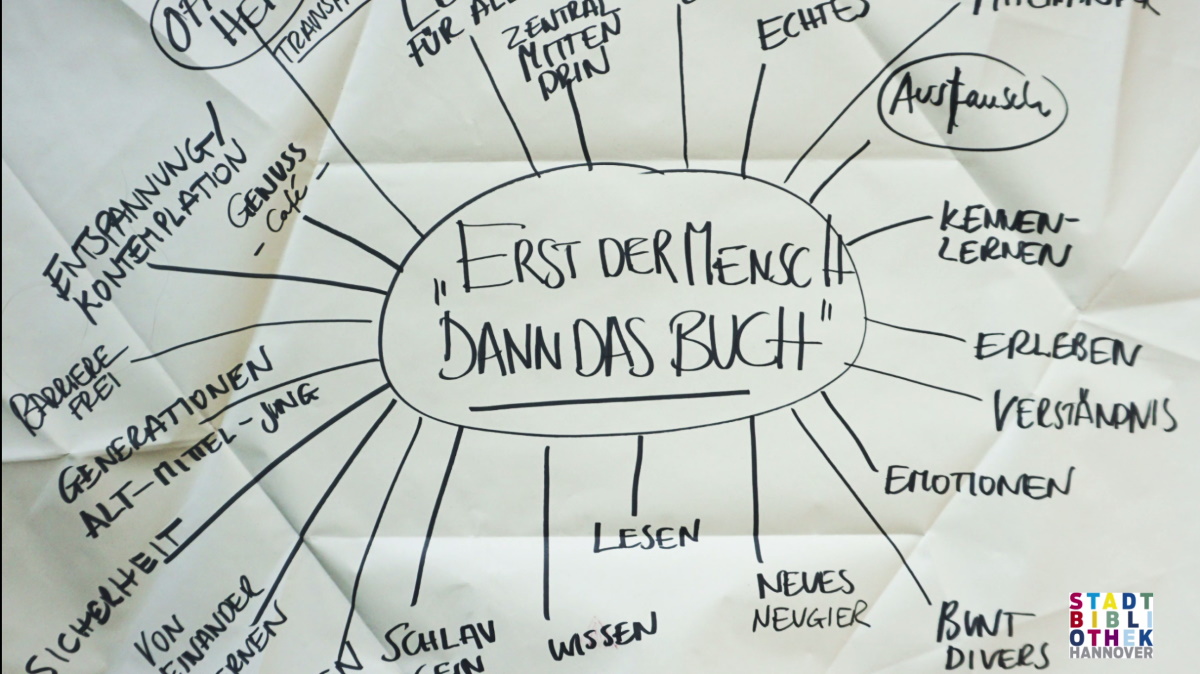 FÜR
ZENTRAL
MITTEN
DRIN
ECHTES
Austausch
ENTSPANNUNG/
KONTEMPLATION
GENUSS
- Café -
KENNEN-
LERNEN
„ERST DER MENSCH
DANN DAS BUCH"
BARRIERE
FREI
ERLEBEN
GENERATIONEN
ALT-MITTEL-JUNG
VERSTÄNDNIS
EMOTIONEN
SICHERHEIT
LESEN
VON
SCHLAU
WISSEN
NEUES
NEUGIER
BUNT
DIVERS
STADT
BIBLI
OTHEK
HANNOVER